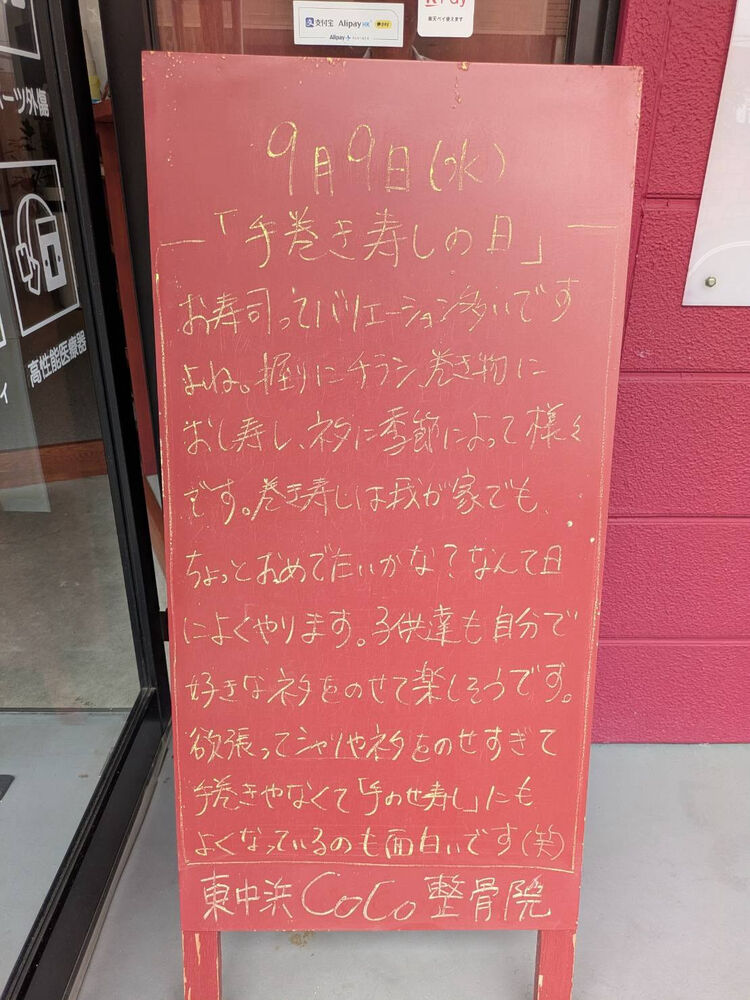 支付宝 Alipay HK
Alipay+
Pay
楽天ペイ使えます
ーツ外傷
高性能医療器
ィ
9月9日(水)
「手巻き寿しの日」
お寿司ってバリエーション多いです
よね。握りにチラシ巻き物に
おし寿し、ネタに季節によって様々
です。巻き寿しは我が家でも、
ちょっとおめでたいかな?なんて日
によくやります。子供達も自分で
好きなネタをのせて楽しそうです。
欲張ってシャリやネタをのせすぎて
手巻きやなくて「手のせ寿し」にも
よくなっているのも面白いです(笑)
東中浜CoCo整骨院